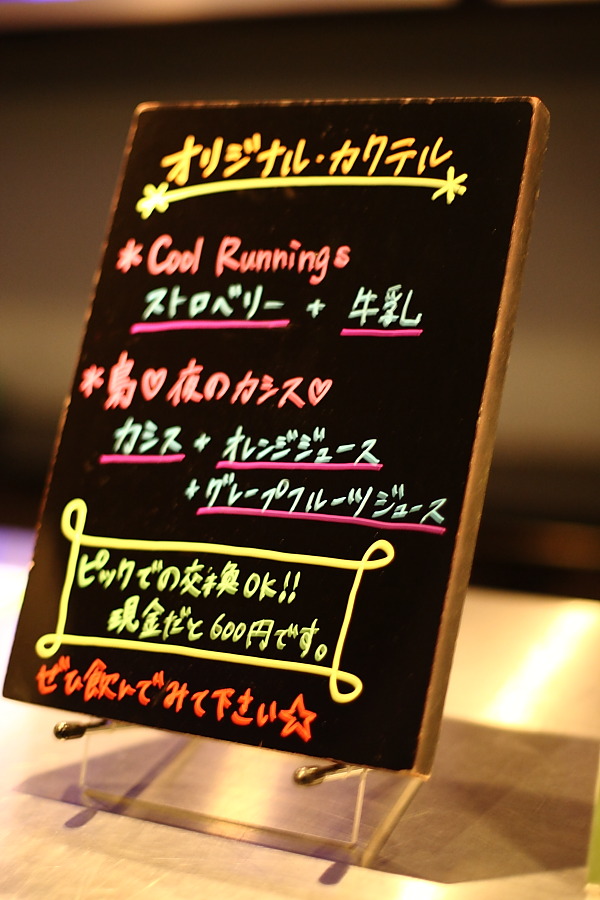 オリジナル・カクテル
*Cool Runnings
ストロベリー + 牛乳
*鳥♡夜のカシス♡
カシス + オレンジジュース
+グレープフルーツジュース
ピックでの交換OK!!
現金だと600円です。
ぜひ飲んでみて下さい☆